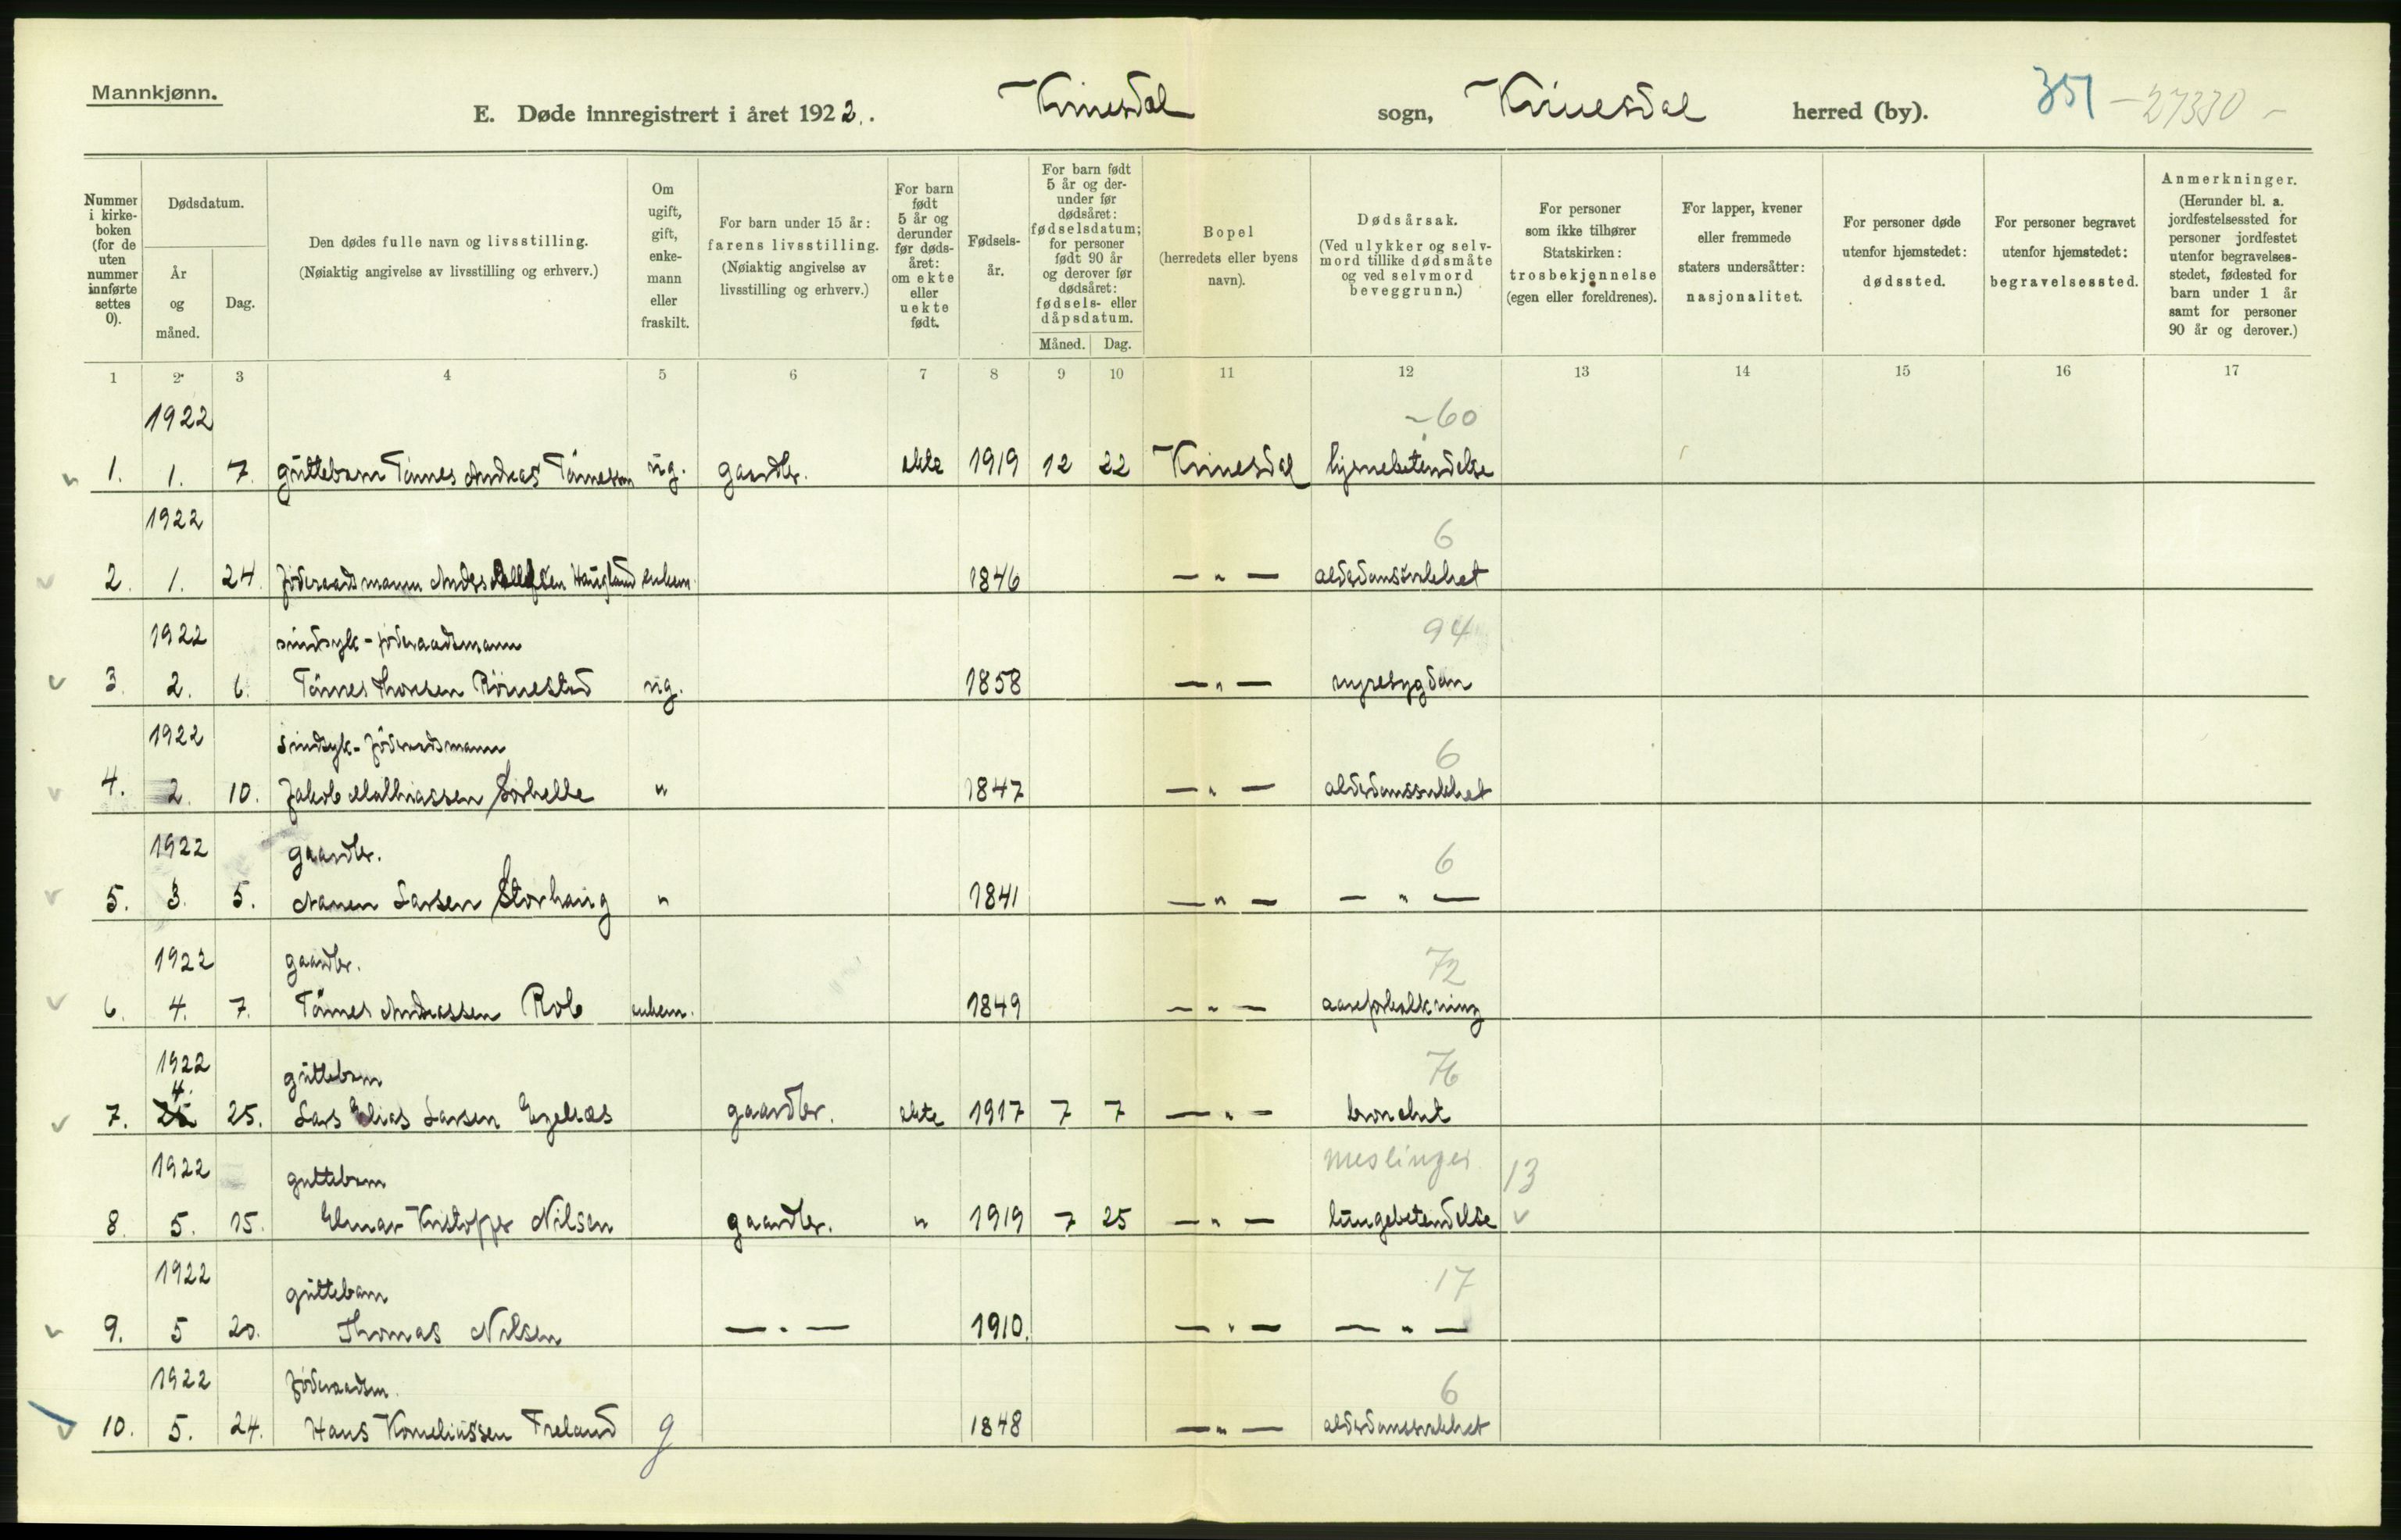 Mannkjønn.
E. Døde innregistrert i året 1922. Kvinesdal sogn, Kvinesdal herred (by). 351 - 27330 -
Nummer i kirke- boken (for de uten nummer innførte settes 0).
Dødsdatum.
År og måned.
Dag.
Den dødes fulle navn og livsstilling.
(Nøiaktig angivelse av livsstilling og erhverv.)
Om ugift, gift, enke- mann eller fraskilt.
For barn under 15 år: farens livsstilling.
(Nøiaktig angivelse av livsstilling og erhverv.)
For barn født 5 år og derunder før døds- året: om ekte eller uekte født.
Fødsels- år.
For barn født 5 år og der- under før dødsåret: fødselsdatum; for personer født 90 år og derover før dødsåret: fødsels- eller dåpsdatum.
Måned. Dag.
Bopel
(herredets eller byens navn).
Dødsårsak.
(Ved ulykker og selv- mord tillike dødsmåte og ved selvmord beveggrunn.)
For personer som ikke tilhører Statskirken: trosbekjennelse (egen eller foreldrenes).
For lapper, kvener eller fremmede staters undersåtter: nasjonalitet.
For personer døde utenfor hjemstedet: dødssted.
For personer begravet utenfor hjemstedet: begravelsessted.
Anmerkninger.
(Herunder bl. a. jordfestelsessted for personer jordfestet utenfor begravelses- stedet, fødested for barn under 1 år samt for personer 90 år og derover.)
1 2 3 4 5 6 7 8 9 10 11 12 13 14 15 16 17
1922 60
1. 1. 7. guttebarn Tønnes Andreas Tønnessen ug. gaardbr. ekte 1919 12 22 Kvinesdal hjernebetendelse
1922 6
2. 1. 24. føderaadsmann Anders Haugland enkem. 1846 — " — alderdomssvakhet
1922 sindsyk - føderaadsmann 94
3. 2. 6. Tønnes Thorsen Rørnestad ug. 1858 — " — nyresygdom
1922 Sindsyk - føderaadsmann 6
4. 2. 10. Jakob Mathiassen " 1847 — " — alderdomssvakhet
1922 gaardbr. 6
5. 3. 5. Larsen Storhaug " 1841 — " — — " —
1922 gaardbr. 72
6. 4. 7. Tønnes Andreassen enkem. 1849 — " — aareforkalkning
1922 guttebarn 76
4.
7. 25. Lars Elias Larsen gaardbr. ekte 1917 7 7 — " — bronchit
1922 guttebarn meslinger 13
8. 5. 15. Elmar Kristoffer Nilsen gaardbr. " 1919 7 25 — " — lungebetendelse v
1922 guttebarn 17
9. 5 20. Thomas Nilsen — " — 1910. — " — — " —
1922 føderaadsm. 6
10. 5. 24. Hans Korneliussen Freland g 1848 — " — alderdomssvakhet